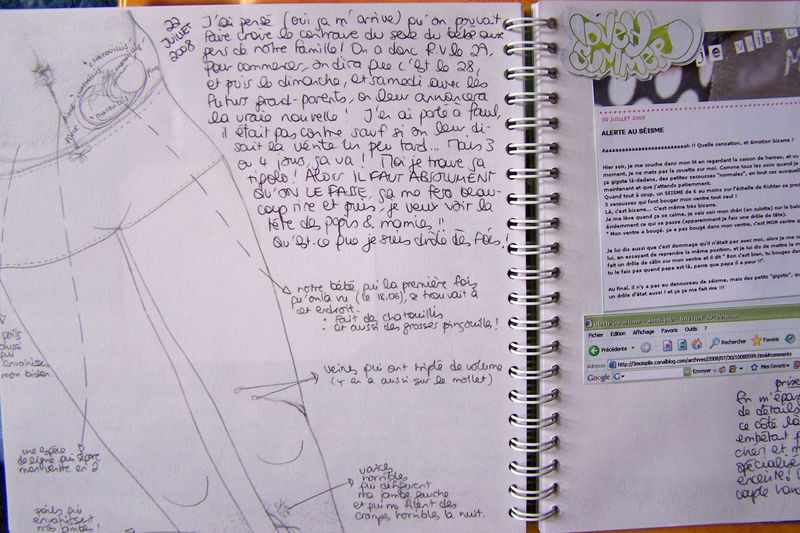 22
JUILLET
2008
J'ai pensé (oui ça m'arrive) qu'on pouvait
faire croire le contraire du sexe du bébé aux
gens de notre famille! On a donc RV le 29,
pour commencer, on dira que c'est le 28,
et puis le dimanche, et samedi avec les
futurs grand-parents, on leur annoncera
la vraie nouvelle! J'en ai parlé à Paul,
il était pas contre sauf si on leur di-
sait la vérité un peu tard... Mais 3
ou 4 jours, ça va! Moi je trouve ça
rigolo! Alors IL FAUT ABSOLUMENT
QU'ON LE FASSE, ça me fera beau-
coup rire et puis je veux voir la
tête des papis & mamies!!
Qu'est-ce que je suis drôle des fois!
CHATOUILLIS
notre bébé, qui la première fois
qu'on l'a vu (le 18.06), se trouvait à
cet endroit.
Fait de chatouilles
et aussi des grosses ginsouille!
poils
aussi
qui
envahissent
mon bidon.
veines, qui ont triplé de volume
(y en a aussi sur le mollet)
une espèce
de ligne qui sépare
mon ventre en 2
varice
horribles
qui défigurent
ma jambe gauche
et qui me filent des
crampes horribles la nuit.
poils qui
envahissent
mes jambes!
LOVELY
SUMMER
je vis
30 JUILLET 2008
ALERTE AU SÉISME
Aaaaaaaaaaaaaaaaaaaaaaaah !! Quelle sensation, et émotion bizarre !
Hier soir, je me couche dans mon lit en regardant la saison de heroes, et vu
moment, je ne mets pas la couette sur moi. Comme tous les soirs quand je
ça gigote là-dedans, des petites secousses "normales", en tout cas auxquell
maintenant et que j'attends patiemment.
Quand tout à coup, un SEISME de 6 au moins sur l'échelle de Richter se prod
3 secousses qui font bouger mon ventre tout seul !
Là, c'est bizarre... c'est même très bizarre.
Je me lève quand ça se calme, je vais voir mon chéri (en culotte) sur le balco
évidemment ce qui se passe (apparemment je fais une drôle de tête).
" Mon ventre a bougé. ça a pas bougé dans mon ventre, c'est MON ventre q
Je lui dis aussi que c'est dommage qu'il n'était pas avec moi, alors je me
lui, en essayant de reprendre la même position, et je lui dis de mettre la m
fait un drôle de câlin sur mon ventre et il dit " Bon c'est bien, tu bouges dan
tu le fais pas quand papa est là, parce que papa il a peur !!".
Au final, il n'y a pas eu de nouveau de séisme, mais des petits "gigotis",
un drôle d'état aussi ! et ça ça me fait rire !!!
Fichier Edition Affichage Favoris Outils ?
Précédente
Rechercher
Favoris
Google
Envoyer
Mes favoris
prise
En m'épa
de détails
ce côté là
embêtant
cher! et m
spécialisé